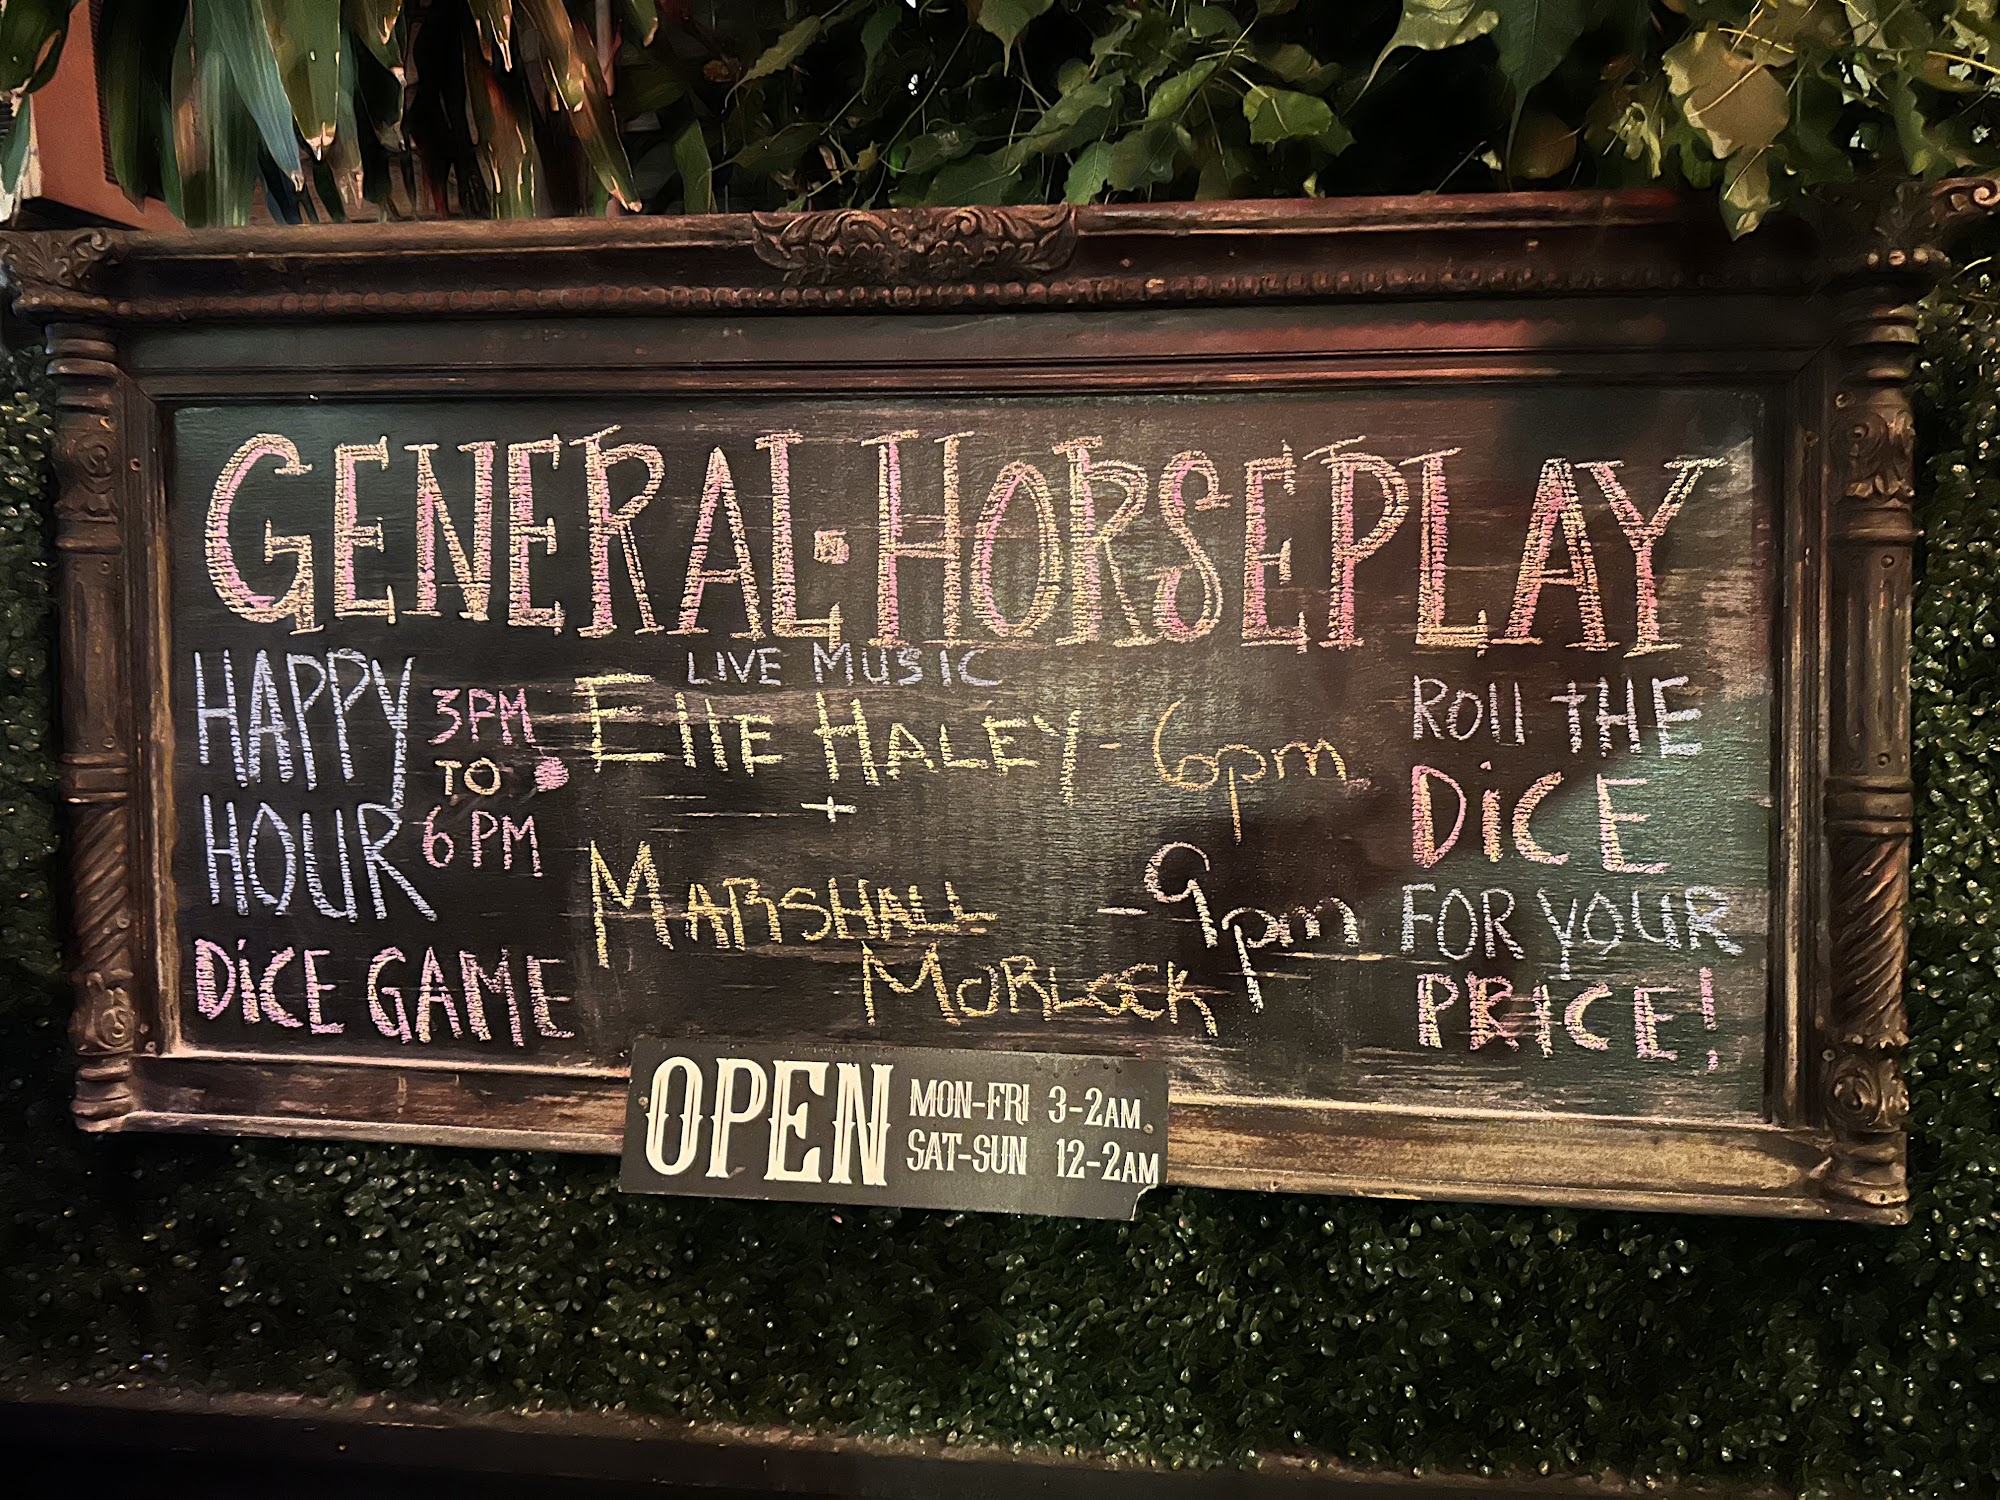 GENERAL·HORSEPLAY
HAPPY
HOUR
3PM
TO
6PM
DiCE GAME
LIVE MUSIC
EllE HALEY - 6pm
+
MARSHALL
MORLOCK
- 9pm
Roll tHE
DiCE
FOR YOUR
PRICE!
OPEN
MON-FRI 3-2AM
SAT-SUN 12-2AM